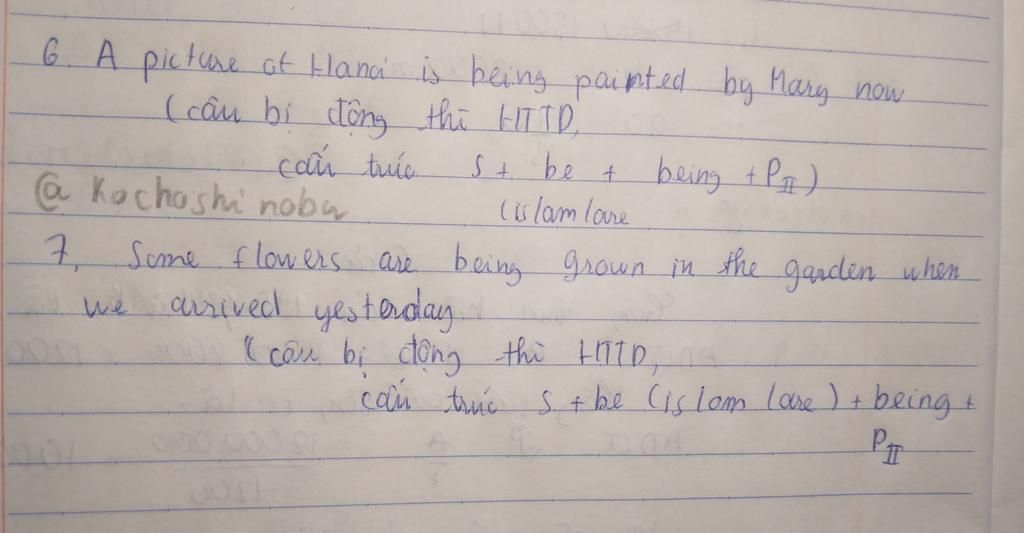 6. A picture of Hanoi is being painted by Mary now
(câu bị động thì HTTD,
cấu trúc S + be + being + PII)
@ Kochoshinobu (is/am/are
7, Some flowers are being grown in the garden when
we arrived yesterday.
(câu bị động thì HTTD,
cấu trúc S + be (is/am/are) + being +
PII